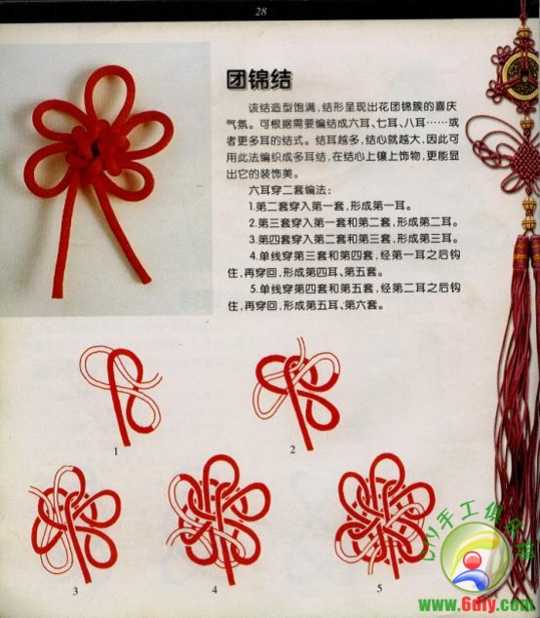 28
团锦结
该结造型饱满，结形呈现出花团锦簇的喜庆
气氛。可根据需要编结成六耳、七耳、八耳……或
者更多耳的结式。结耳越多，结心就越大，因此可
用此法编织成多耳结，在结心上镶上饰物，更能显
出它的装饰美。
六耳穿二套编法：
1.第二套穿入第一套，形成第一耳。
2.第三套穿入第一套和第二套，形成第二耳。
3.第四套穿入第二套和第三套，形成第三耳。
4.单线穿第三套和第四套，经第一耳之后钩
住，再穿回，形成第四耳、第五套。
5.单线穿第四套和第五套，经第二耳之后钩
住，再穿回，形成第五耳、第六套。
1
2
3
4
5
DIY手工俱乐部
www.6diy.com